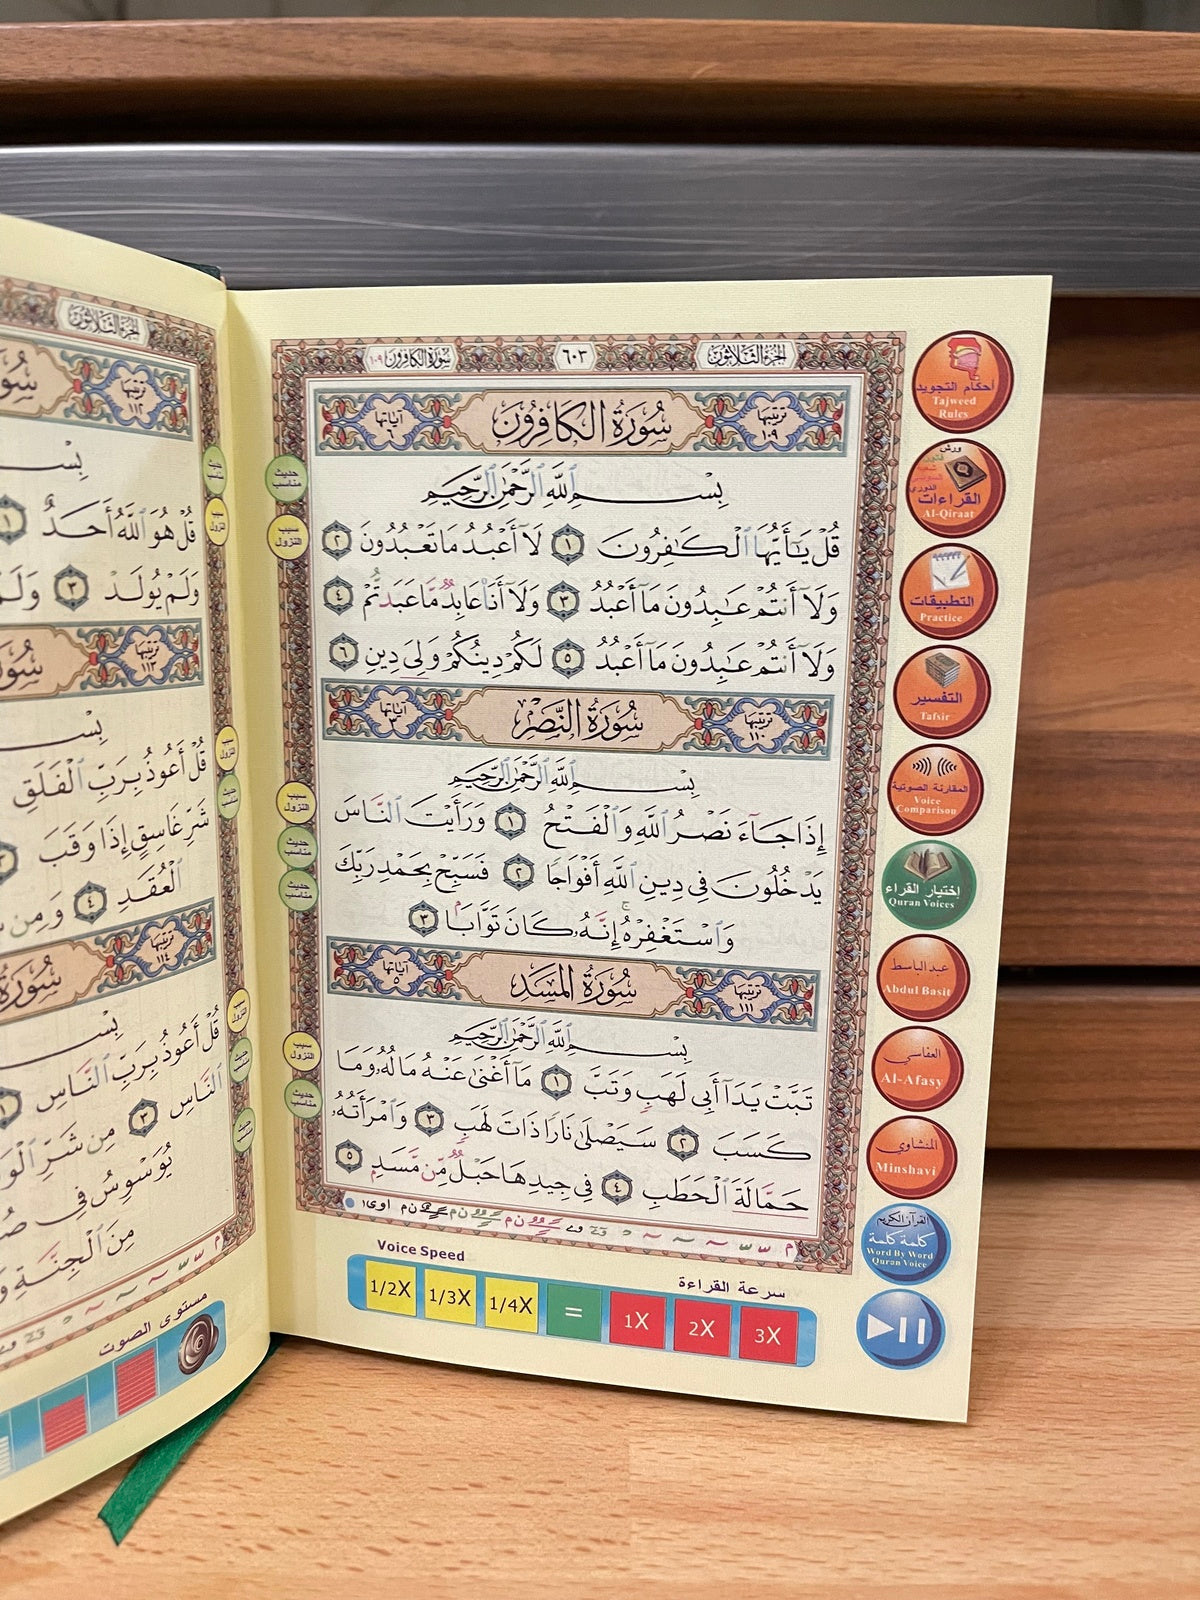 الجزء الثلاثون
٦٠٣
سورة الكافرون ١٠٩
ترتيبها ١٠٩
سُورَةُ الكَافِرُونَ
آياتها ٦
بِسْمِ ٱللَّهِ ٱلرَّحْمَٰنِ ٱلرَّحِيمِ
قُلْ يَـٰٓأَيُّهَا ٱلْكَـٰفِرُونَ ١ لَآ أَعْبُدُ مَا تَعْبُدُونَ ٢
وَلَآ أَنتُمْ عَـٰبِدُونَ مَآ أَعْبُدُ ٣ وَلَآ أَنَا۠ عَابِدٌ مَّا عَبَدتُّمْ ٤
وَلَآ أَنتُمْ عَـٰبِدُونَ مَآ أَعْبُدُ ٥ لَكُمْ دِينُكُمْ وَلِىَ دِينِ ٦
ترتيبها ١١٠
سُورَةُ النَّصْرِ
آياتها ٣
بِسْمِ ٱللَّهِ ٱلرَّحْمَٰنِ ٱلرَّحِيمِ
إِذَا جَآءَ نَصْرُ ٱللَّهِ وَٱلْفَتْحُ ١ وَرَأَيْتَ ٱلنَّاسَ
يَدْخُلُونَ فِى دِينِ ٱللَّهِ أَفْوَاجًا ٢ فَسَبِّحْ بِحَمْدِ رَبِّكَ
وَٱسْتَغْفِرْهُ إِنَّهُۥ كَانَ تَوَّابًۢا ٣
ترتيبها ١١١
سُورَةُ المَسَدِ
آياتها ٥
بِسْمِ ٱللَّهِ ٱلرَّحْمَٰنِ ٱلرَّحِيمِ
تَبَّتْ يَدَآ أَبِى لَهَبٍ وَتَبَّ ١ مَآ أَغْنَىٰ عَنْهُ مَالُهُۥ وَمَا
كَسَبَ ٢ سَيَصْلَىٰ نَارًا ذَاتَ لَهَبٍ ٣ وَٱمْرَأَتُهُۥ
حَمَّالَةَ ٱلْحَطَبِ ٤ فِى جِيدِهَا حَبْلٌ مِّن مَّسَدٍۭ ٥
حديث مناسب
سبب النزول
سبب النزول
حديث مناسب
حديث مناسب
سبب النزول
حديث مناسب
Voice Speed
سرعة القراءة
1/2X 1/3X 1/4X = 1X 2X 3X
أحكام التجويد
Tajweed
Rules
ورش
القراءات
Al-Qiraat
التطبيقات
Practice
التفسير
Tafsir
المقارنة الصوتية
Voice
Comparison
إختيار القراء
Quran Voices
عبد الباسط
Abdul Basit
العفاسي
Al-Afasy
المنشاوي
Minshavi
القرآن الكريم
كلمة كلمة
Word By Word
Quran Voice
الجزء الثلاثون
ترتيبها ١١٢
قُلْ هُوَ ٱللَّهُ أَحَدٌ ١
وَلَمْ يُولَدْ ٣
ترتيبها ١١٣
قُلْ أَعُوذُ بِرَبِّ ٱلْفَلَقِ
شَرِّ غَاسِقٍ إِذَا وَقَبَ
ٱلْعُقَدِ ٤ وَمِن
ترتيبها ١١٤
قُلْ أَعُوذُ بِرَبِّ ٱلنَّاسِ ١
ٱلنَّاسِ ٣ مِن شَرِّ
يُوَسْوِسُ فِى
مِنَ ٱلْجِنَّةِ
مستوى الصوت